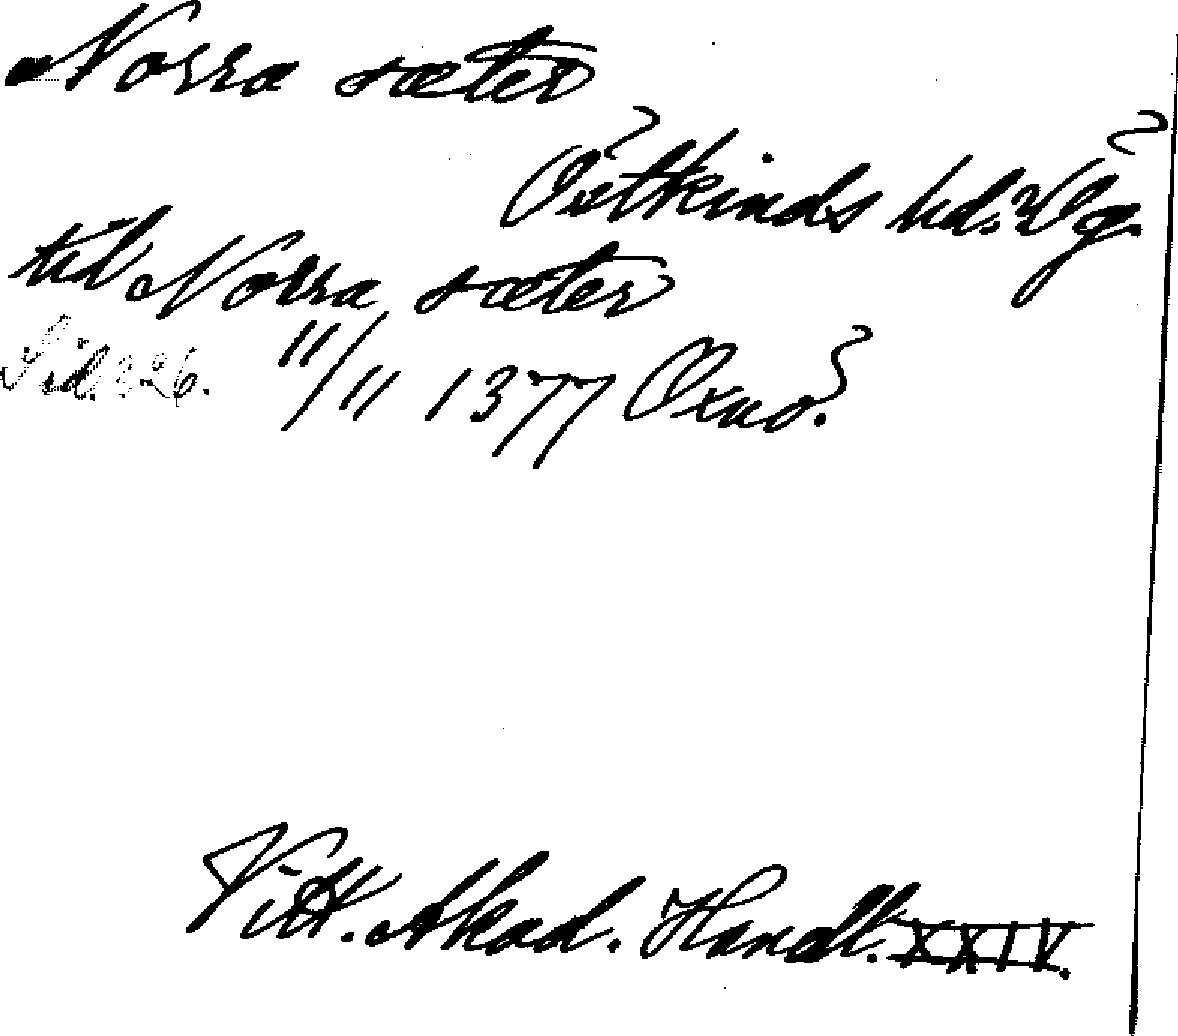 Norra sæter
Östkinds hd. Ög.
til Norra sæter
Sid. 226. 11/11 1377 Öxnö.
Vitt. Akad. Handl. XXIV.